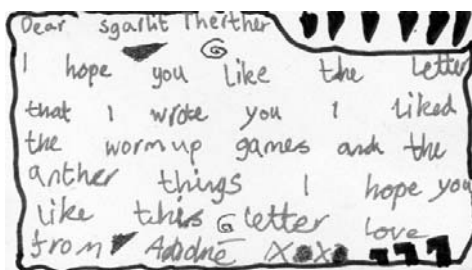 Dear sgarlit Therther
I hope you like the letter
that I wrote you I liked
the worm up games and the
anther things I hope you
like this letter love
from Adidnē XOXO